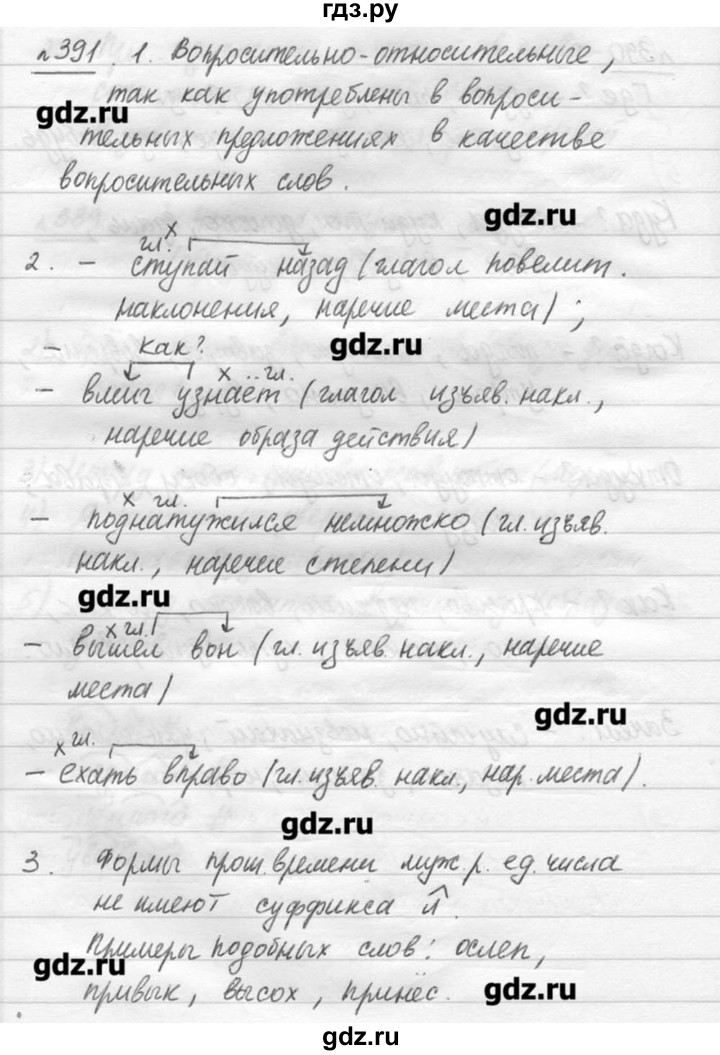 гдз.ру
№391. 1. Вопросительно-относительные,
так как употреблены в вопроси-
gdz.ru
тельных предложениях в качестве
вопросительных слов.
gdz.ru
гл. х
2. - ступай назад (глагол повелит.
наклонения, наречие места);
- как? gdz.ru
х гл.
- вмиг узнает (глагол изъяв. накл.,
наречие образа действия)
х гл.
- поднатужился немножко (гл. изъяв.
накл., наречие степени)
gdz.ru
х гл.
- вышел вон (гл. изъяв. накл., наречие
места)
gdz.ru
х гл.
- ехать вправо (гл. изъяв. накл, нар. места).
gdz.ru
3. Формы прош. времени муж. р. ед. числа
не имеют суффикса л.
Примеры подобных слов: ослеп,
gdz.ru
привык, высох, принёс. gdz.ru
gdz.ru